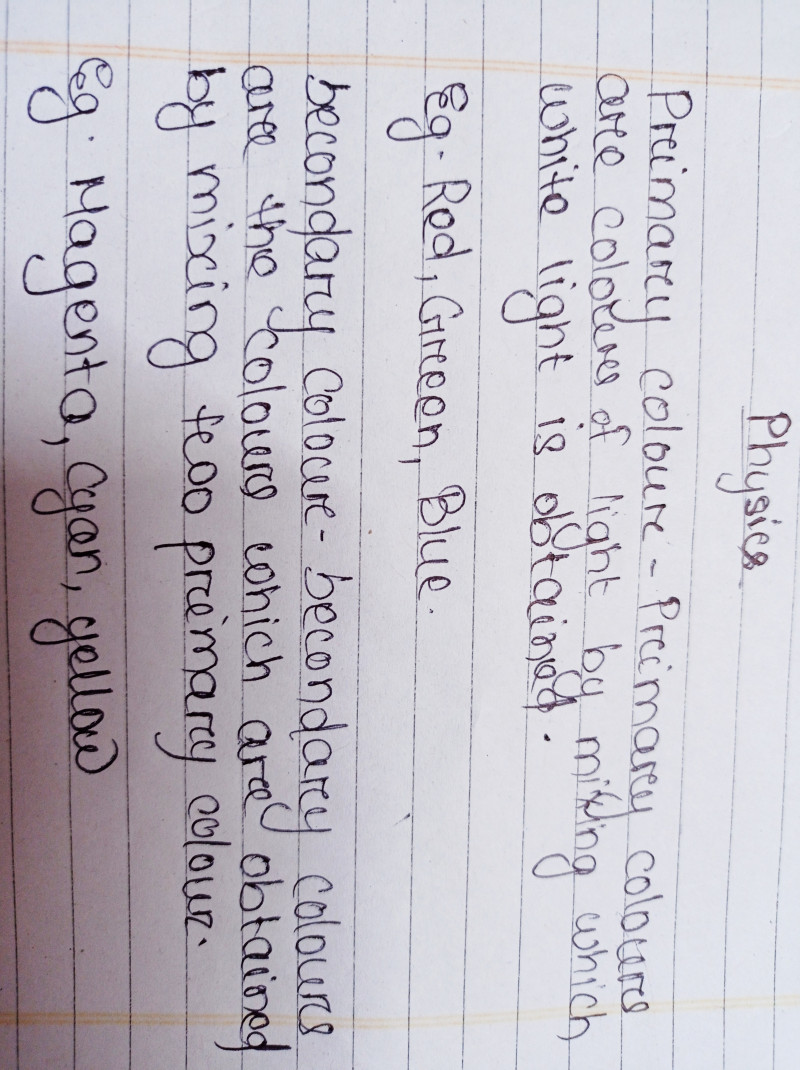 Physics
Primary colour - Primary colours
are colours of light by mixing which
white light is obtained.
Eg. Red, Green, Blue.
Secondary colour - Secondary colours
are the colours which are obtained
by mixing two primary colour.
Eg. Magenta, Cyan, yellow